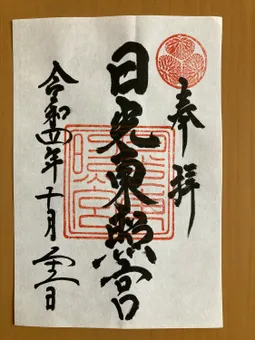 奉拝
日光東照宮
令和四年十月二十一日